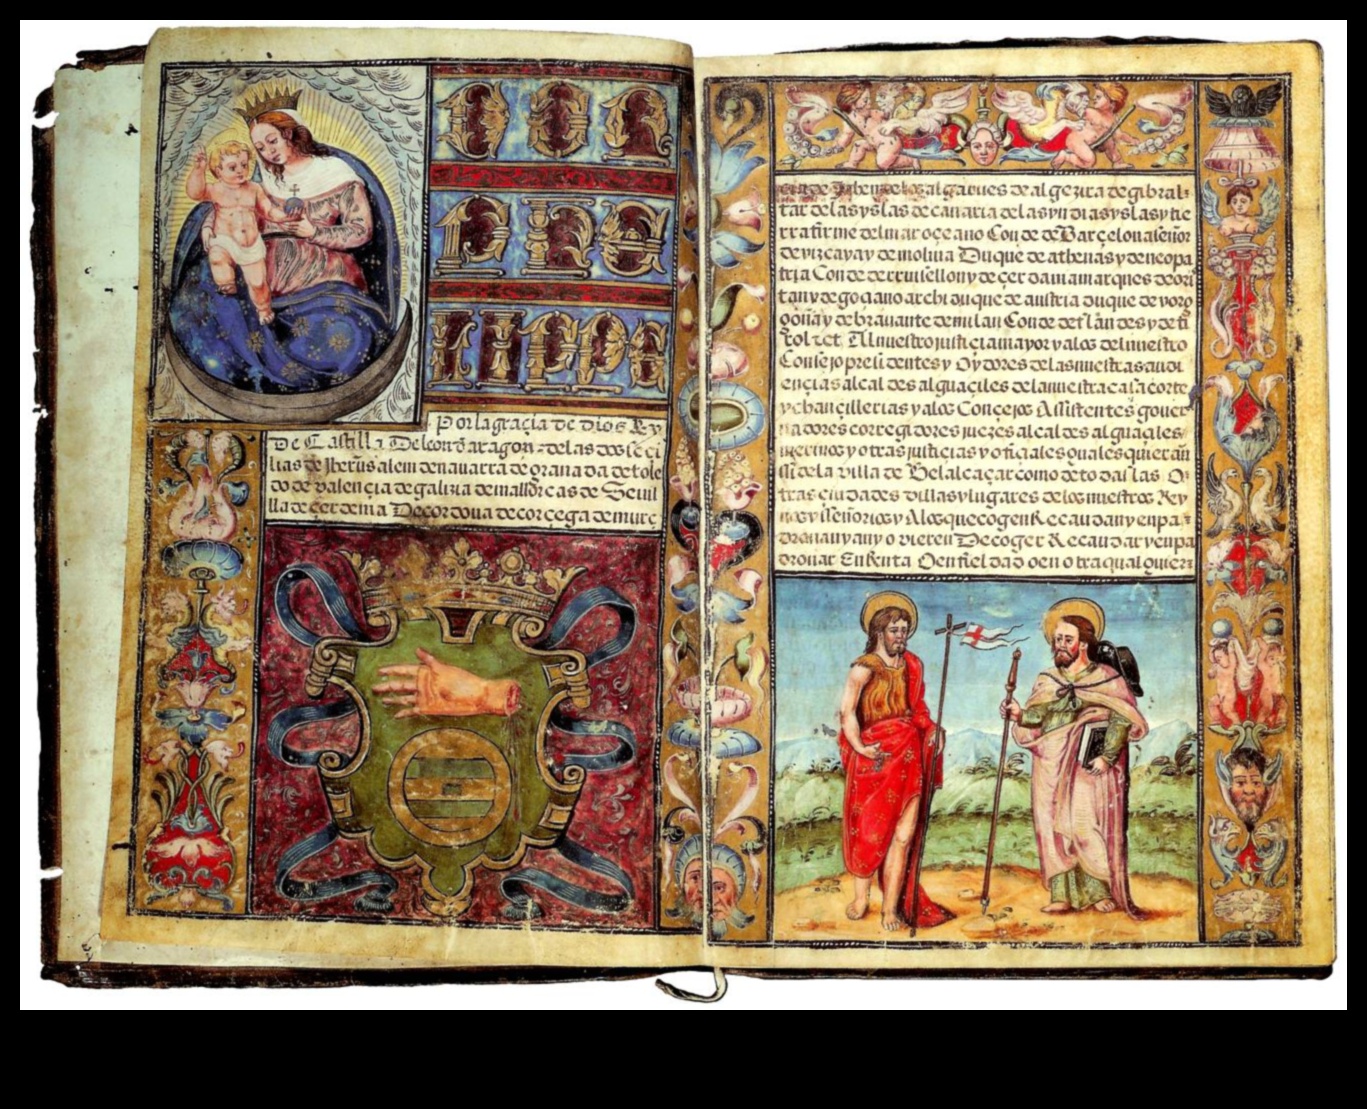 Por la graçia de Dios Rey
De Castilla De leon d aragon de las dos seci
lias de Iherusalem de nauarra de granada de tole
do de valençia de galizia de mallorcas de Seuil
lla de çerdeña De cordoua de corçega de murç
de Jahen de los algarues de algezira de gibral-
tar de las yslas de canaria de las yndias yslas y tie
rra firme del mar oçeano Conde de Barçelona señor
de vizcaya y de molina Duque de athenas y de neopa
tria Conde de rruisellon y de çerdania marques de ori
tan y de goçiano archiduque de austria duque de vorg
goña y de brauante de milan Conde de flandes y de ti
rol etc Al nuestro justiçia mayor y a los del nuestro
Consejo presidentes y Oydores de las nuestras audi
ençias alcaldes alguaçiles de la nuestra casa corte
y chançillerias y a los Conçejos Asistentes gouer
nadores corregidores juezes alcaldes alguaçiles
merinos y otras justiçias y ofiçiales quales quier añ
si de la villa de Belalcaçar como de todas las O-
tras çiudades villas y lugares de los nuestros Rey
nos y señorios y A los que cogen Recaudan y enpa-
dronan y an y ovieren De coger Recaudar y enpa
dronar En Renta O en fieldad o en otra qualquier